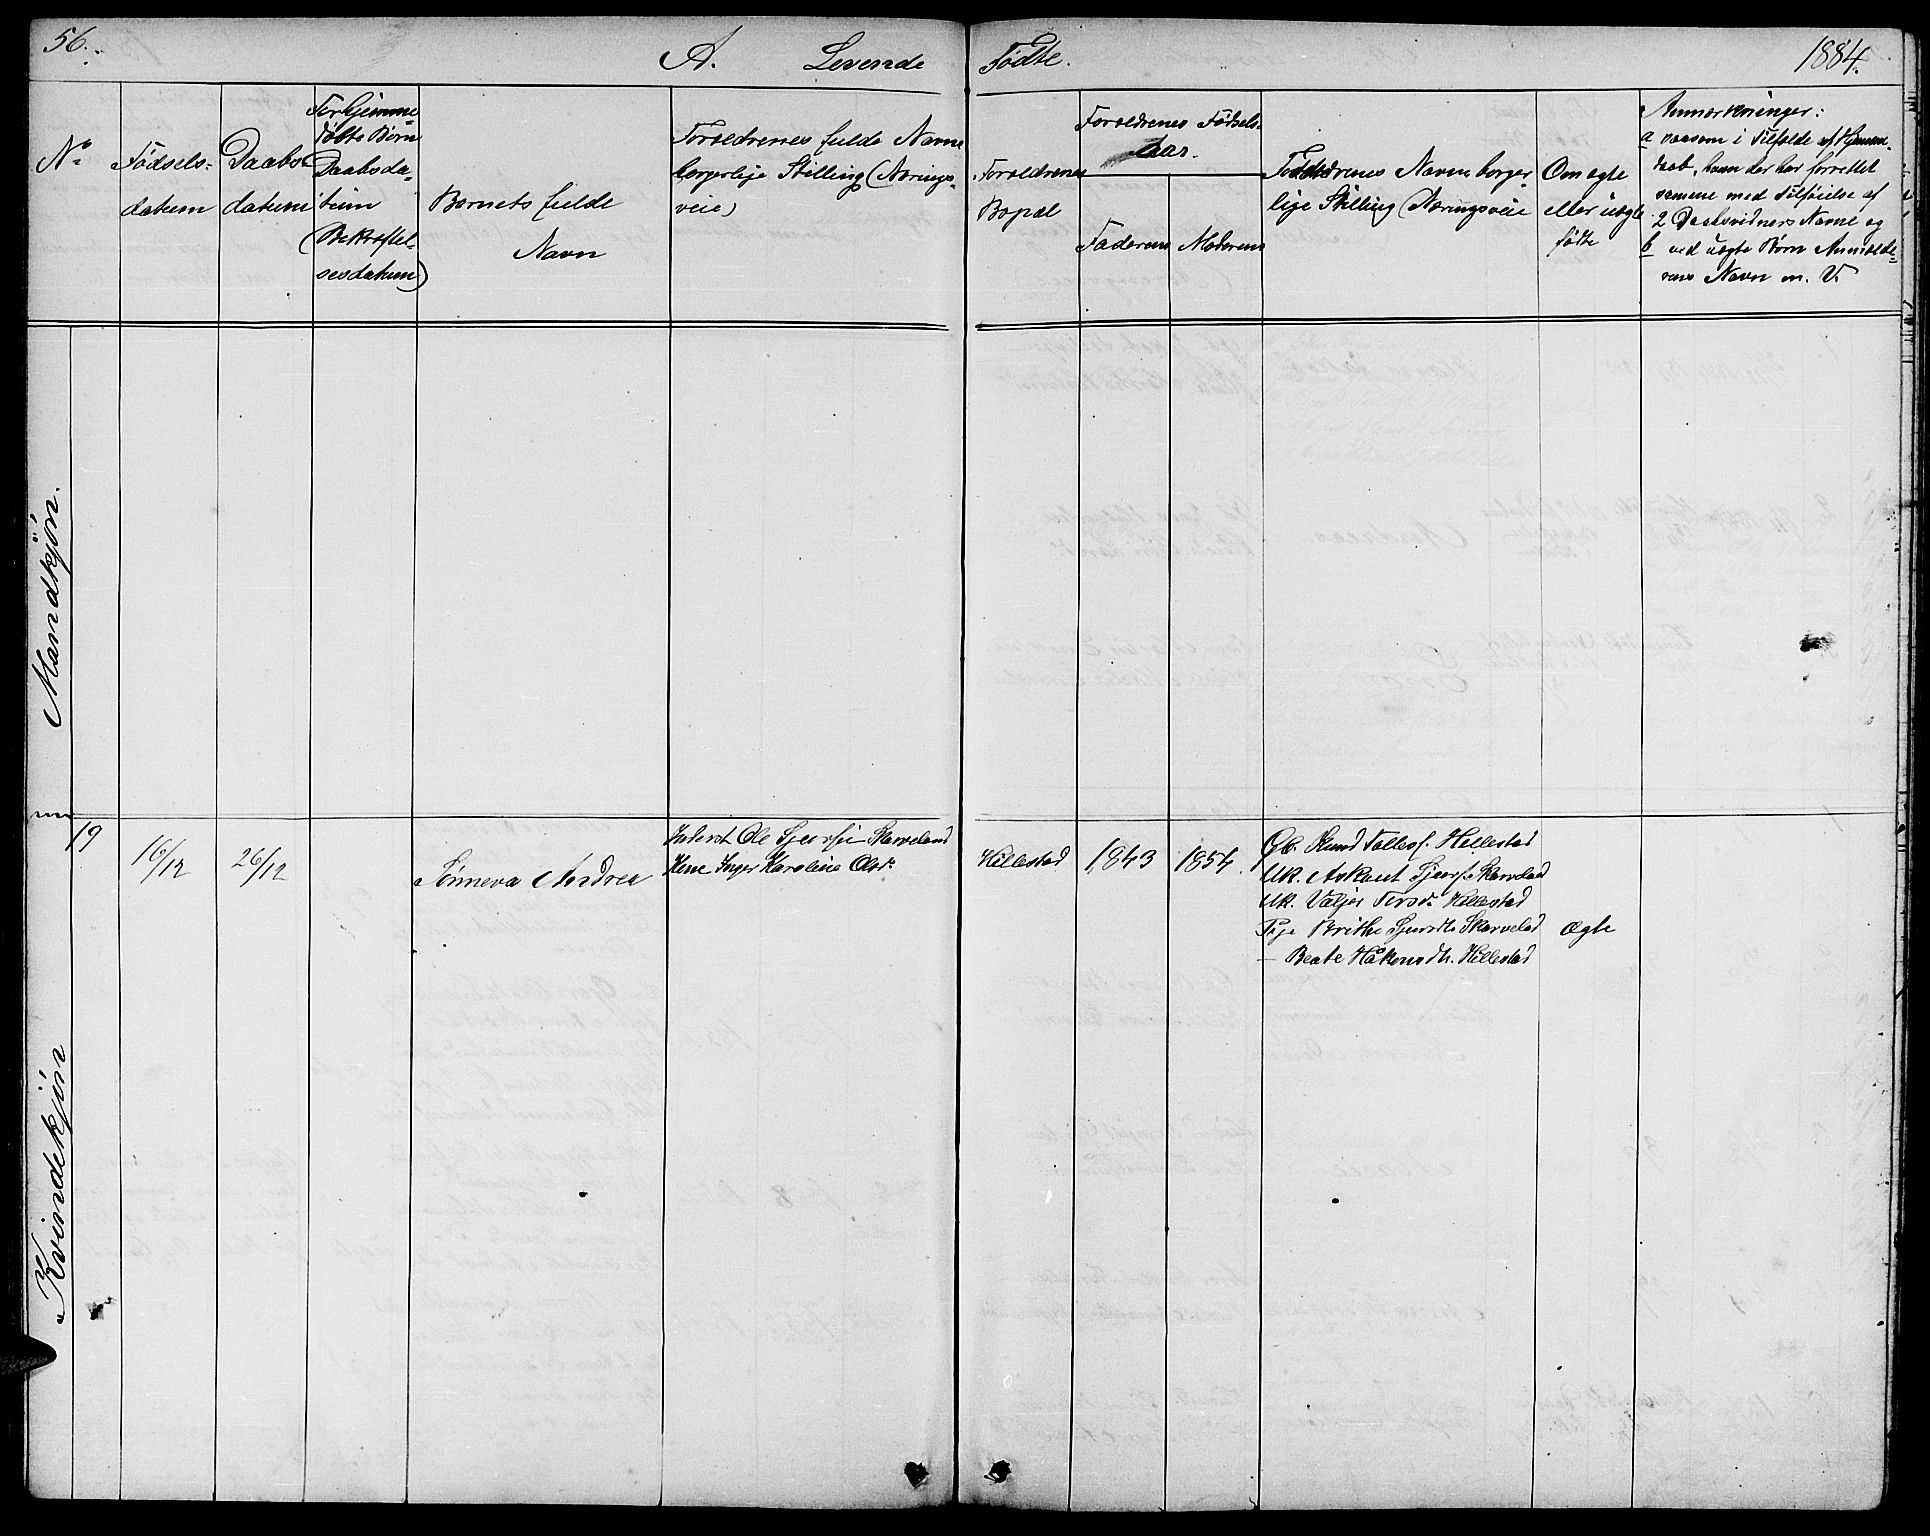 56.
A. Levende Fødte. 1884.
No
Fødsels-
datum
Daabs-
datum
For hjemme-
døbte Børn
Daabsda-
tum
(Bekræftel-
sesdatum)
Barnets fulde
Navn
Forældrenes fulde Navne
borgerlige Stilling (Nærings-
veie)
Forældrenes
Bopæl
Forældrenes Fødsels-
aar.
Faderens Moderens
Faddrenes Navne borger-
lige Stilling (Næringsveie
Om ægte
eller uægte
fødte
Anmærkninger:
a saasom i Tilfælde af Hjemme-
daab, hvem der har forrettet
samme med Tilføielse af
2 Daabsvidners Navne og
b ved uægte Børn Anmelde-
rens Navn m. V.
Mandkjøn.
Kvindekjøn
19
16/12
26/12
Sönneva Andrea
Inderst Ole Sjursen Skarveland
Kone Inger Karoline Olsdr.
Hillestad
1843
1854.
Gb. Knud Tollefs. Hillestad
Uk. Askout Sjurs. Skarveland
Uk. Valjer Tersdr. Hillestad
Pige Brithe Sjursdtr Skarveland
— Beate Håkonsdtr. Hillestad
Ægte